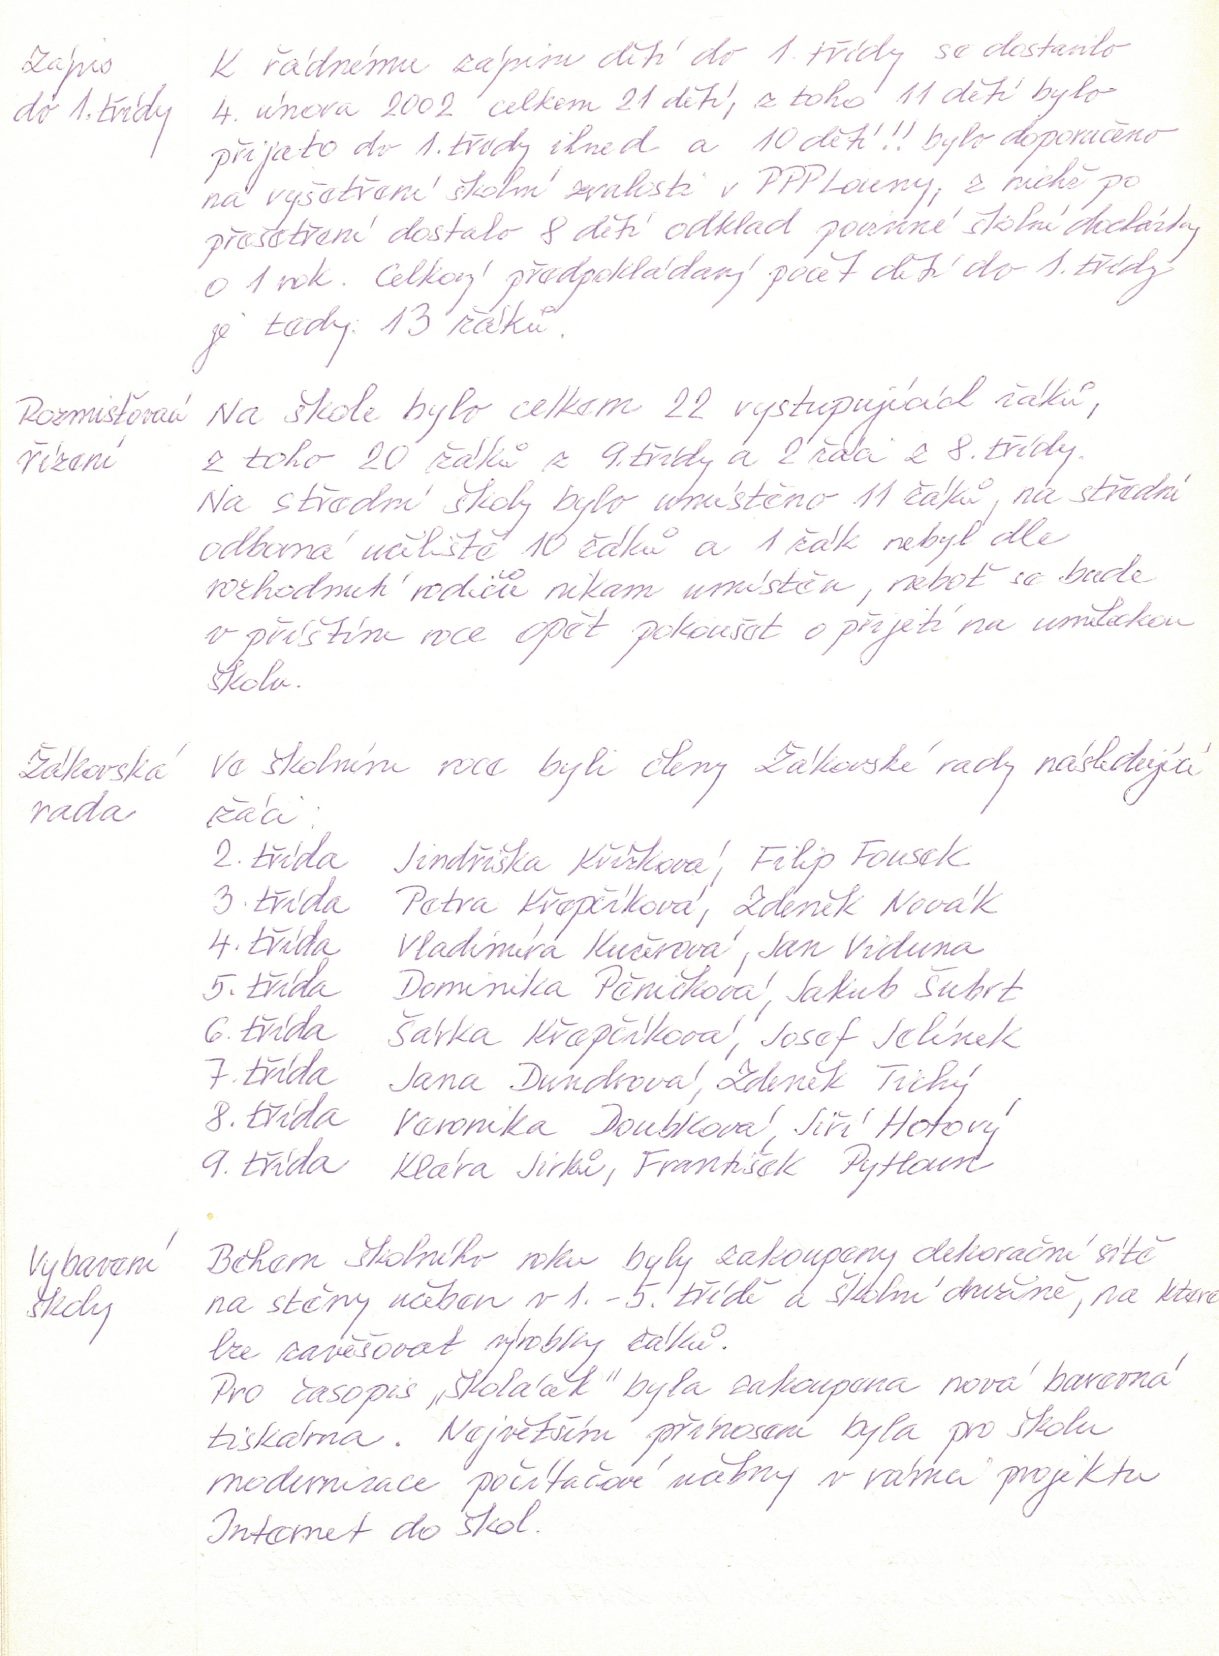 Zápis
do 1. třídy
K řádnému zápisu dětí do 1. třídy se dostavilo
4. února 2002 celkem 21 dětí, z toho 11 dětí bylo
přijato do 1. třídy ihned a 10 dětí!! bylo doporučeno
na vyšetření školní zralosti v PPP Louny, z nichž po
přešetření dostalo 8 dětí odklad povinné školní docházky
o 1 rok. Celkový předpokládaný počet dětí do 1. třídy
je tedy: 13 žáků.
Rozmisťovací
řízení
Na škole bylo celkem 22 vystupujících žáků,
z toho 20 žáků z 9. třídy a 2 žáci z 8. třídy.
Na střední školy bylo umístěno 11 žáků, na střední
odborná učiliště 10 žáků a 1 žák nebyl dle
rozhodnutí rodičů nikam umístěn, neboť se bude
v příštím roce opět pokoušet o přijetí na uměleckou
školu.
Žákovská
rada
Ve školním roce byli členy Žákovské rady následující
žáci:
2. třída Jindřiška Křížková, Filip Fousek
3. třída Petra Křepčíková, Zdeněk Novák
4. třída Vladimíra Kučerová, Jan Viduna
5. třída Dominika Pěničková, Jakub Šubrt
6. třída Šárka Křepčíková, Josef Jelínek
7. třída Jana Dundrová, Zdeněk Tichý
8. třída Veronika Doubková, Jiří Hotový
9. třída Klára Jirků, František Pytloun
Vybavení
školy
Během školního roku byly zakoupeny dekorační sítě
na stěny učeben v 1. - 5. třídě a školní družině, na které
lze zavěšovat výrobky žáků.
Pro časopis „Školáček" byla zakoupena nová barevná
tiskárna. Největším přínosem byla pro školu
modernizace počítačové učebny v rámci projektu
Internet do škol.